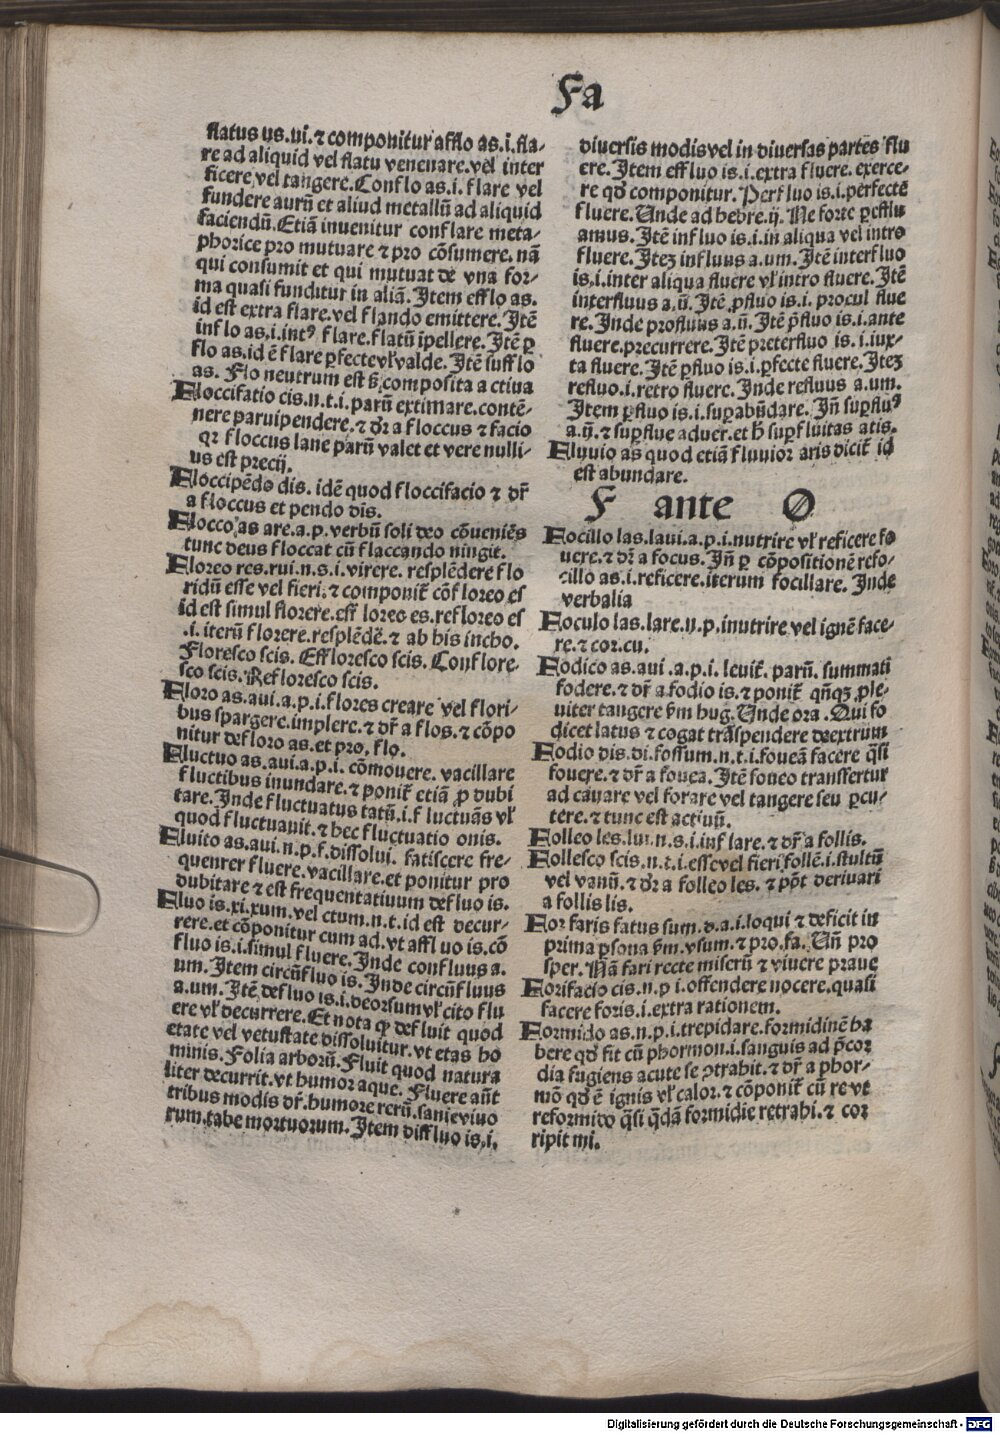 Fa
flatus us.ui.⁊ componitur afflo as.i.fla-
re ad aliquid vel flatu venenare.vel inter
ficere vel tangere.Conflo as.i.flare vel
fundere aurū et aliud metallū ad aliquid
faciendū.Etiā inuenitur conflare meta-
phorice pro mutuare ⁊ pro cōsumere.nā
qui consumit et qui mutuat de vna for-
ma quasi funditur in aliā.Item efflo as.
id est extra flare.vel flando emittere.Itē
inflo as.i.intꝰ flare.flatū īpellere.Itē ꝑ
flo as.id ē flare ꝑfecte vl̓ valde.Itē sufflo
as. Flo neutrum est ſꝫ composita actiua
Floccifatio cis.n.t.i.parū extimare.contē-
nere paruipendere.⁊ dr̄ a floccus ⁊ facio
qꝛ floccus lane parū valet et vere nulli-
us est precij.
Floccipēdo dis. idē quod floccifacio ⁊ dr̄
a floccus et pendo dis.
Flocco as are.a.p.verbū soli deo cōueniēs
tunc deus floccat cū flaccando ningit.
Floreo res.rui.n.s.i.virere. resplēdere flo
ridū esse vel fieri.⁊ componit̄ cōfloreo es
id est simul florere.effloreo es.refloreo es
.i.iterū florere.resplēdē.⁊ ab his incho.
Floresco scis. Effloresco scis. Conflore-
sco scis.Refloresco scis.
Floro as.aui.a.p.i.flores creare vel flori-
bus spargere.implere.⁊ dr̄ a flos.⁊ cōpo
nitur defloro as.et pro.flo.
Fluctuo as.aui.a.p.i. cōmouere. vacillare
fluctibus inundare.⁊ ponit̄ etiā ꝓ dubi
tare.Inde fluctuatus tatū.i.fluctuās vl̓
quod fluctuauit.⁊ hec fluctuatio onis.
Fluito as.aui.n.p.f.dissolui. fatiscere fre-
quenter fluere.vacillare.et ponitur pro
dubitare ⁊ est frequentatiuum de fluo is.
Fluo is.xi.xum.vel ctum.n.t.id est decur-
rere.et cōponitur cum ad.vt affluo is.cō
fluo is.i.simul fluere.Inde confluus a.
um.Item circūfluo is.Inde circūfluus
a.um.Itē defluo is.i.deorsum vl̓ cito flu
ere vl̓ decurrere.Et nota ꝙ defluit quod
etate vel vetustate dissoluitur.vt etas ho
minis.Folia arborū.Fluit quod natura
liter decurrit.vt humor aque.Fluere aūt
tribus modis dr̄.humore rerū.sanie viuo
rum.tabe mortuorum.Item diffluo is.i.
diuersis modis vel in diuersas partes flu
ere.Item effluo is.i.extra fluere.exerce-
re qd̄ componitur.Perfluo is.i.perfecte
fluere.Unde ad hebre.ij.Ne forte ꝑefflu
amus.Itē influo is.i.in aliqua vel intro
fluere.Itez influus a.um.Itē interfluo
is.i.inter aliqua fluere vl̓ intro fluere.Itē
interfluus a.ū.Itē ꝓfluo is.i.procul flue
re.Inde profluus a.ū.Itē p̄fluo is.i.ante
fluere.precurrere.Itē preterfluo is.i.iux-
ta fluere.Itē ꝑfluo is.i.ꝑfecte fluere.Itez
refluo.i.retro fluere.Inde refluus a.um.
Item ꝑfluo is.i.suꝑabūdare.Iñ suꝑfluꝰ
a.ū.⁊ suꝑflue aduer.et h̄ suꝑfluitas atis.
Fluuio as quod etiā fluuior aris dicit̄ id
est abundare.
F ante O
Focillo las.laui.a.p.i.nutrire vl̓ reficere fo
uere.⁊ dr̄ a focus.Iñ ꝑ cōpositionē refo-
cillo as.i.reficere.iterum focillare. Inde
verbalia
Foculo las.lare.n.p.i nutrire vel ignē face-
re.⁊ cor.cu.
Fodico as.aui .a.p.i.leuit̄. parū. summati
fodere.⁊ dr̄ a fodio is.⁊ ponit̄ qñqꝫ ꝓ le-
uiter tangere ẜm hug.Unde ora.Qui fo
dicet latus ⁊ cogat trāspendere dextrum
Fodio dis.di.fossum.n.t.i.foueā facere q̄si
fouere.⁊ dr̄ a fouea.Itē foueo transfertur
ad cauare vel forare vel tangere seu ꝑcu-
tere.⁊ tunc est actiuū.
Folleo les.lui.n.s.i.inflare.⁊ dr̄ a follis.
Follesco scis.n.t.i.esse vel fieri follē.i.stultū
vel vanū.⁊ dr̄ a folleo les. ⁊ pōt deriuari
a follis lis.
For faris fatus sum.d.a.i.loqui ⁊ deficit in
prima ꝑsona ẜm vsum.⁊ pro.fa. Uñ pro
sper. Nā fari recte miserū ⁊ viuere praue
Forifacio cis.n.p i.offendere nocere.quasi
facere foris.i.extra rationem.
Formido as.n.p.i.trepidare.formidinē ha
bere qd̄ fit cū phormon.i.sanguis ad p̄cor
dia fugiens acute se ꝯtrahit.⁊ dr̄ a phor-
mō qd̄ ē ignis vl̓ calor.⁊ cōponit̄ cū re vt
reformido q̄si q̄dā formidie retrahi.⁊ cor
ripit mi.
Digitalisierung gefördert durch die Deutsche Forschungsgemeinschaft - DFG